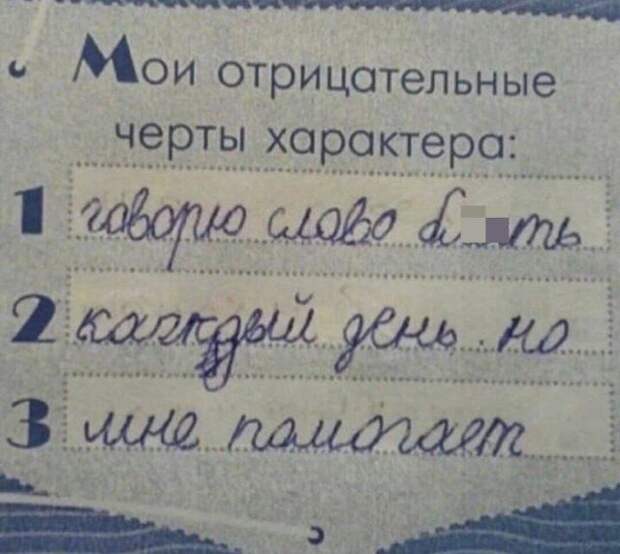 Мои отрицательные
черты характера:
1 говорю слово б ть
2 каждый день. но
3 мне помогает